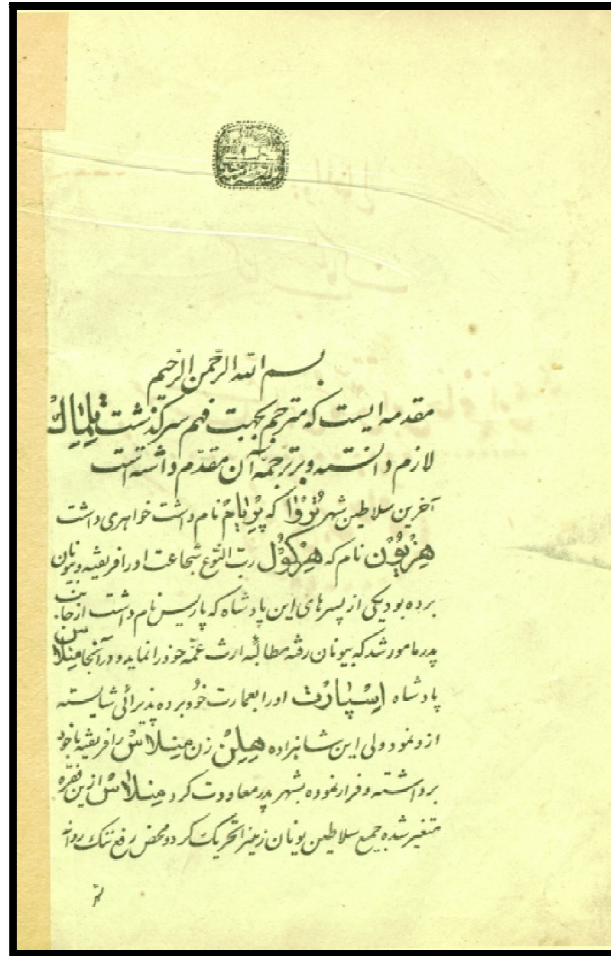 بسم الله الرحمن الرحیم
مقدمه ایست که مترجم بجهت فهم سرگذشت تِلِماِك
لازم دانسته و بر ترجمهٔ آن مقدّم داشته است
آخرین سلاطین شهر تُرْوا که پِرْیام نام داشت خواهری داشت
هِزْیُوْن نام که هِرْکُوْل ربّ النّوع شجاعت او را فریفته و بیونان
برده بود یکی از پسرهای این پادشاه که پاریس نام داشت از جانب
پدر مامور شد که بیونان رفته مطالبهٔ ارث عمّه خود را نماید و در آنجا مِنِلاس
پادشاه اِسْپارْت او را بعمارت خود برده پذیرائی شایسته
از او نمود ولی این شاهزاده هِلِنْ زن مِنِلاسْ را فریفته با خود
برداشته و فرار نموده بشهر پدر معاودت کرد مِنِلاسْ ازین فقره
متغیر شده جمیع سلاطین یونان زمین را تحریک کرد و محض رفع ننگ روانه